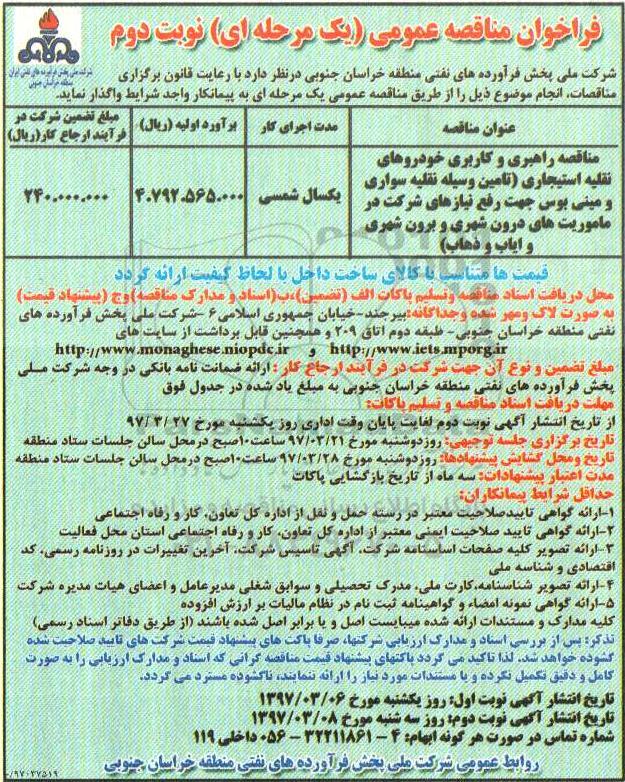 فراخوان مناقصه عمومی (یک مرحله ای) نوبت دوم
شرکت ملی پخش فرآورده های نفتی ایران
منطقه خراسان جنوبی
شرکت ملی پخش فرآورده های نفتی منطقه خراسان جنوبی درنظر دارد با رعایت قانون برگزاری
مناقصات، انجام موضوع ذیل را از طریق مناقصه عمومی یک مرحله ای به پیمانکار واجد شرایط واگذار نماید.
عنوان مناقصه
مدت اجرای کار
برآورد اولیه (ریال)
مبلغ تضمین شرکت در
فرآیند ارجاع کار(ریال)
مناقصه راهبری و کاربری خودروهای
نقلیه استیجاری (تامین وسیله نقلیه سواری
و مینی بوس جهت رفع نیازهای شرکت در
ماموریت های درون شهری و برون شهری
و ایاب و ذهاب)
یکسال شمسی
۴.۷۹۲.۵۶۵.۰۰۰
۲۴۰.۰۰۰.۰۰۰
قیمت ها متناسب با کالای ساخت داخل با لحاظ کیفیت ارائه گردد
محل دریافت اسناد مناقصه وتسلیم پاکات الف (تضمین)،ب(اسناد و مدارک مناقصه)وج (پیشنهاد قیمت)
به صورت لاک ومهر شده وجداگانه:بیرجند-خیابان جمهوری اسلامی۶ -شرکت ملی پخش فرآورده های
نفتی منطقه خراسان جنوبی- طبقه دوم اتاق ۲۰۹ و همچنین قابل برداشت از سایت های
http://www.iets.mporg.ir و http://www.monaghese.niopdc.ir
مبلغ تضمین و نوع آن جهت شرکت در فرآیند ارجاع کار : ارائه ضمانت نامه بانکی در وجه شرکت ملی
پخش فرآورده های نفتی منطقه خراسان جنوبی به مبلغ یاد شده در جدول فوق
مهلت دریافت اسناد مناقصه و تسلیم پاکات:
از تاریخ انتشار آگهی نوبت دوم لغایت پایان وقت اداری روز یکشنبه مورخ ۹۷/۳/۲۷
تاریخ برگزاری جلسه توجیهی: روزدوشنبه مورخ ۹۷/۰۳/۲۱ ساعت۱۰صبح درمحل سالن جلسات ستاد منطقه
تاریخ ومحل گشایش پیشنهادها: روزدوشنبه مورخ ۹۷/۰۳/۲۸ ساعت۱۰صبح درمحل سالن جلسات ستاد منطقه
مدت اعتبار پیشنهادات: سه ماه از تاریخ بازگشایی پاکات
حداقل شرایط پیمانکاران:
۱-ارائه گواهی تاییدصلاحیت معتبر در رسته حمل و نقل از اداره کل تعاون، کار و رفاه اجتماعی
۲-ارائه گواهی تایید صلاحیت ایمنی معتبر از اداره کل تعاون، کار و رفاه اجتماعی استان محل فعالیت
۳-ارائه تصویر کلیه صفحات اساسنامه شرکت، آگهی تاسیس شرکت، آخرین تغییرات در روزنامه رسمی، کد
اقتصادی و شناسه ملی
۴-ارائه تصویر شناسنامه،کارت ملی، مدرک تحصیلی و سوابق شغلی مدیرعامل و اعضای هیات مدیره شرکت
۵-ارائه گواهی نمونه امضاء و گواهینامه ثبت نام در نظام مالیات بر ارزش افزوده
کلیه مدارک و مستندات ارائه شده میبایست اصل و یا برابر اصل شده باشند (از طریق دفاتر اسناد رسمی)
تذکر: پس از بررسی اسناد و مدارک ارزیابی شرکتها، صرفا پاکت های پیشنهاد قیمت شرکت های تایید صلاحیت شده
گشوده خواهد شد. لذا تاکید می گردد پاکتهای پیشنهاد قیمت مناقصه گرانی که اسناد و مدارک ارزیابی را به صورت
کامل و دقیق تکمیل نکرده و یا مستندات مورد نیاز را ارائه ننمایند، ناگشوده مسترد می گردد.
تاریخ انتشار آگهی نوبت اول: روز یکشنبه مورخ ۱۳۹۷/۰۳/۰۶
تاریخ انتشار آگهی نوبت دوم: روز سه شنبه مورخ ۱۳۹۷/۰۳/۰۸
شماره تماس در صورت هر گونه ابهام: ۴ - ۳۲۲۱۱۸۶۱ - ۰۵۶ داخلی ۱۱۹
روابط عمومی شرکت ملی پخش فرآورده های نفتی منطقه خراسان جنوبی
۹۷۰۳۷۵۱۹/